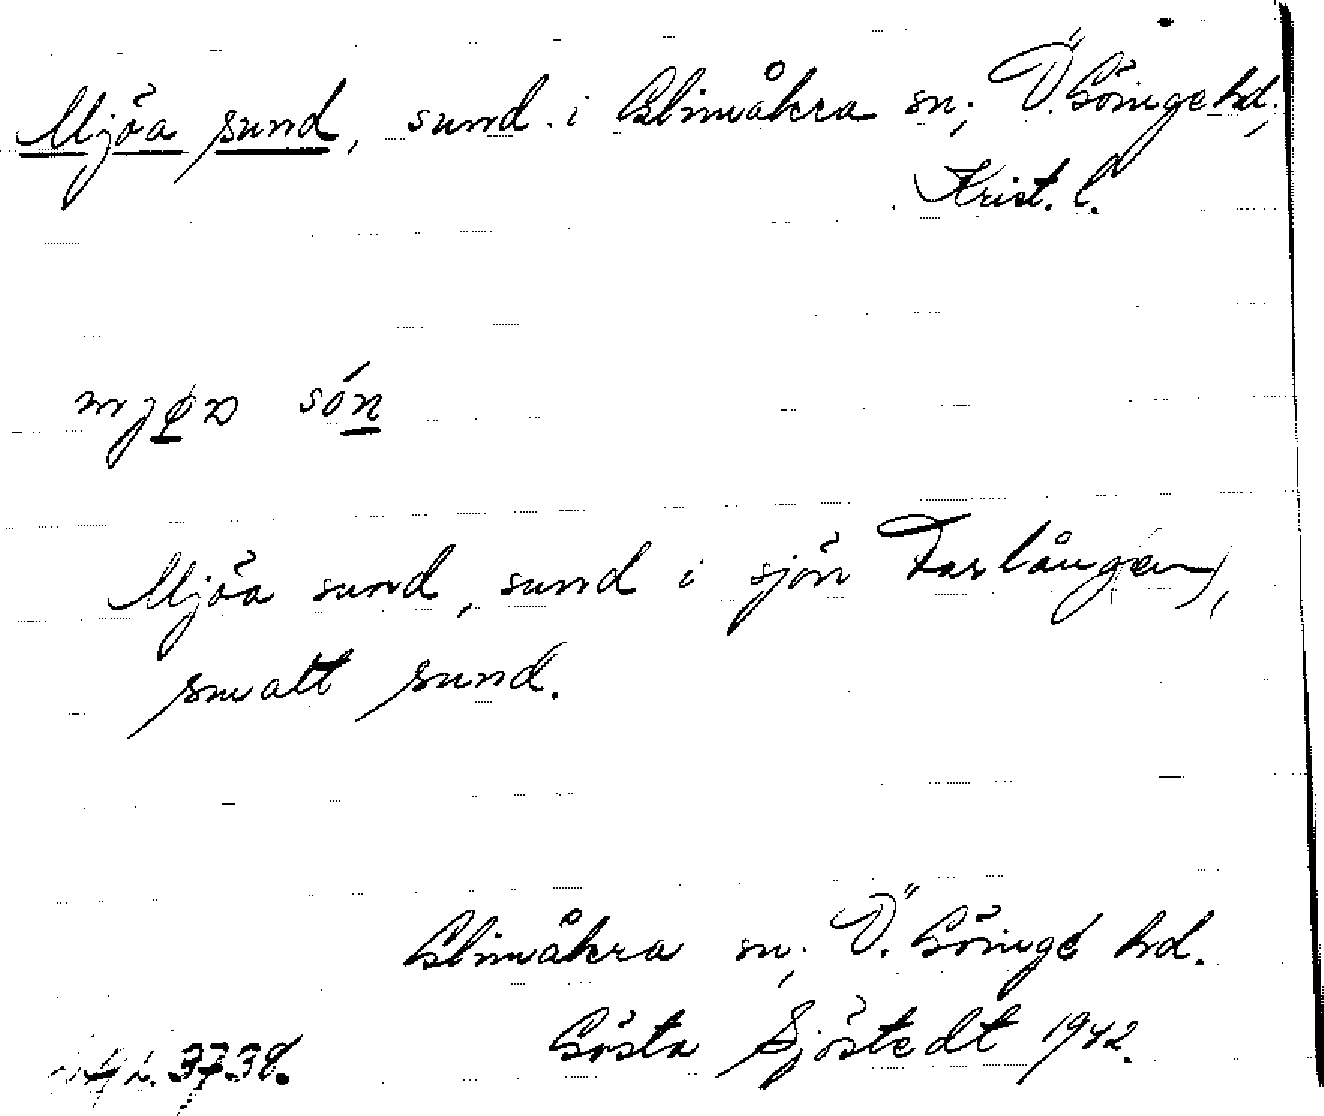 Mjöa sund, sund i Glimåkra sn, Ö. Göinge hd,
Krist. l.
mjøa són
Mjöa sund, sund i sjön Tarlången,
smalt sund.
Glimåkra sn, Ö. Göinge hd.
Gösta Sjöstedt 1942.
3738.